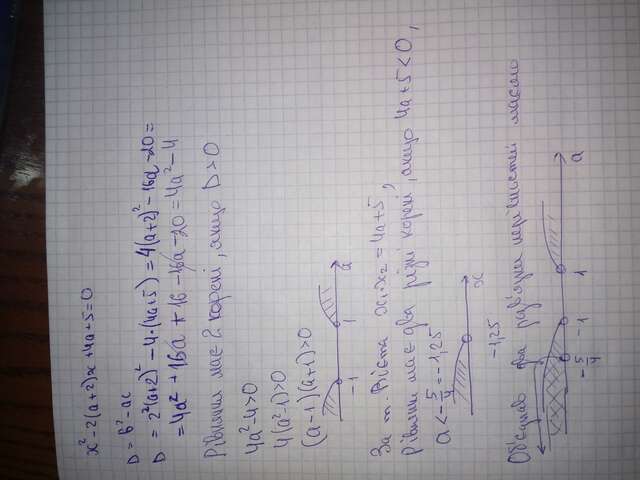 x²-2(a+2)x+4a+5=0
D = b²-ac
D = 2²(a+2)²-4·(4a+5) = 4(a+2)²-16a-20=
=4a²+16a+16-16a-20=4a²-4
Рівняння має 2 корені, якщо D>0
4a²-4>0
4(a²-1)>0
(a-1)(a+1)>0
-1 1 a
За т. Вієта x₁·x₂=4a+5,
рівняння має два різні корені, якщо 4a+5<0,
a<-5/4=-1,25
-1,25 x
два нерівностей маємо
-5/4 -1 1 a